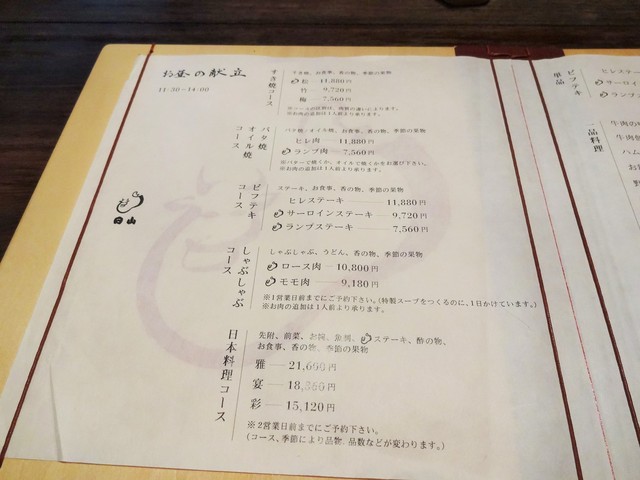 お昼の献立
11:30~14:00
すき焼コース
すき焼、お食事、香の物、季節の果物
松 11,880円
竹 9,720円
梅 7,560円
※お肉の追加は1人前より承ります。
バタ焼
オイル焼
コース
バタ焼・オイル焼、お食事、香の物、季節の果物
ヒレ肉 11,880円
ランプ肉 7,560円
※バターで焼くか、オイルで焼くかをお選び下さい。
※お肉の追加は1人前より承ります。
ビフテキ
コース
ステーキ、お食事、香の物、季節の果物
ヒレステーキ 11,880円
サーロインステーキ 9,720円
ランプステーキ 7,560円
しゃぶしゃぶ
コース
しゃぶしゃぶ、うどん、香の物、季節の果物
ロース肉 10,800円
モモ肉 9,180円
※1営業日前までにご予約下さい。(特製スープをつくるのに、1日かけています。)
※お肉の追加は1人前より承ります。
日本料理コース
先附、前菜、お椀、魚 ステーキ、酢の物、
お食事、香の物、季節の果物
雅 21,600円
宴 18,360円
彩 15,120円
※2営業日前までにご予約下さい。
(コース、季節により品物、品数などが変わります。)
白山
ビフテキ
単品
ヒレステ
サーロイン
一品料理
牛肉の
牛肉
ハム
お